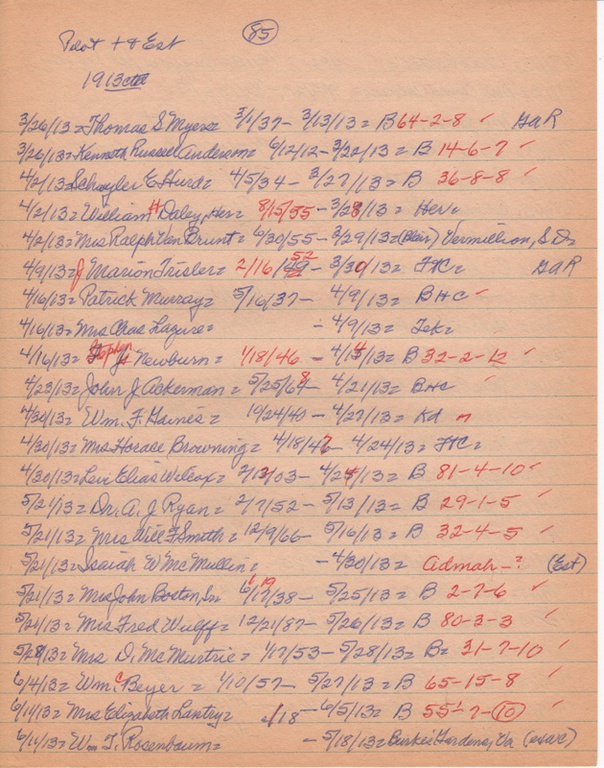 85
Pilot + & Est
1913 ctd
3/26/13 = Thomas S Myers = 3/1/37 - 3/13/13 = B 64-2-8 ✓ GAR
3/26/13 = Kenneth Russel Anderson = 6/12/12 - 3/22/13 = B 14-6-7 ✓
4/2/13 = Schuyler E Hurd = 4/5/34 - 3/27/13 = B 36-8-8 ✓
4/2/13 = William H Daley, Her = 8/15/55 - 3/28/13 = Her =
4/2/13 = Mrs Ralph Van Brunt = 6/30/55 - 3/29/13 = (Blair) Vermillion, S.D =
4/9/13 = J Marion Trisler = 2/16/52 - 3/30/13 = FtC = GAR
4/16/13 = Patrick Murray = 5/16/37 - 4/9/13 = BHC ✓
4/16/13 = Mrs Chas Lagure = - 4/9/13 = Tek =
4/16/13 = Joseph H Newburn = 1/18/46 - 4/14/13 = B 32-2-12 ✓
4/23/13 = John J Ackerman = 5/25/68 - 4/21/13 = BHC
4/30/13 = Wm. F. Haines = 10/24/40 - 4/27/13 = Kd
4/30/13 = Mrs Horace Browning = 4/18/47 - 4/24/13 = FtC =
4/30/13 = Levi Elias Wilcox = 2/13/03 - 4/24/13 = B 81-4-10 ✓
5/21/13 = Dr. A. J Ryan = 2/7/52 - 5/13/13 = B 29-1-5 ✓
5/21/13 = Mrs Will F Smith = 12/9/66 - 5/16/13 = B 32-4-5 ✓
5/21/13 = Isaiah W McMullin = - 4/30/13 = Admah - ? (Est)
5/21/13 = Mrs John Boston, Sr 6/19/38 - 5/25/13 = B 2-7-6 ✓
5/21/13 = Mrs Fred Wulff = 12/21/87 - 5/26/13 = B 80-3-3 ✓
5/28/13 = Mrs D. McMurtrie = 1/17/53 - 5/28/13 = B = 31-7-10 ✓
6/4/13 = Wm. C Beyer = 1/10/57 - 5/27/13 = B 65-15-8 ✓
6/14/13 = Mrs Elizabeth Lantry = /18 - 6/5/13 = B 55-7-10 ✓
6/14/13 = Wm T. Rosenbaum = - 5/18/13 = Burkes Gardens, Va